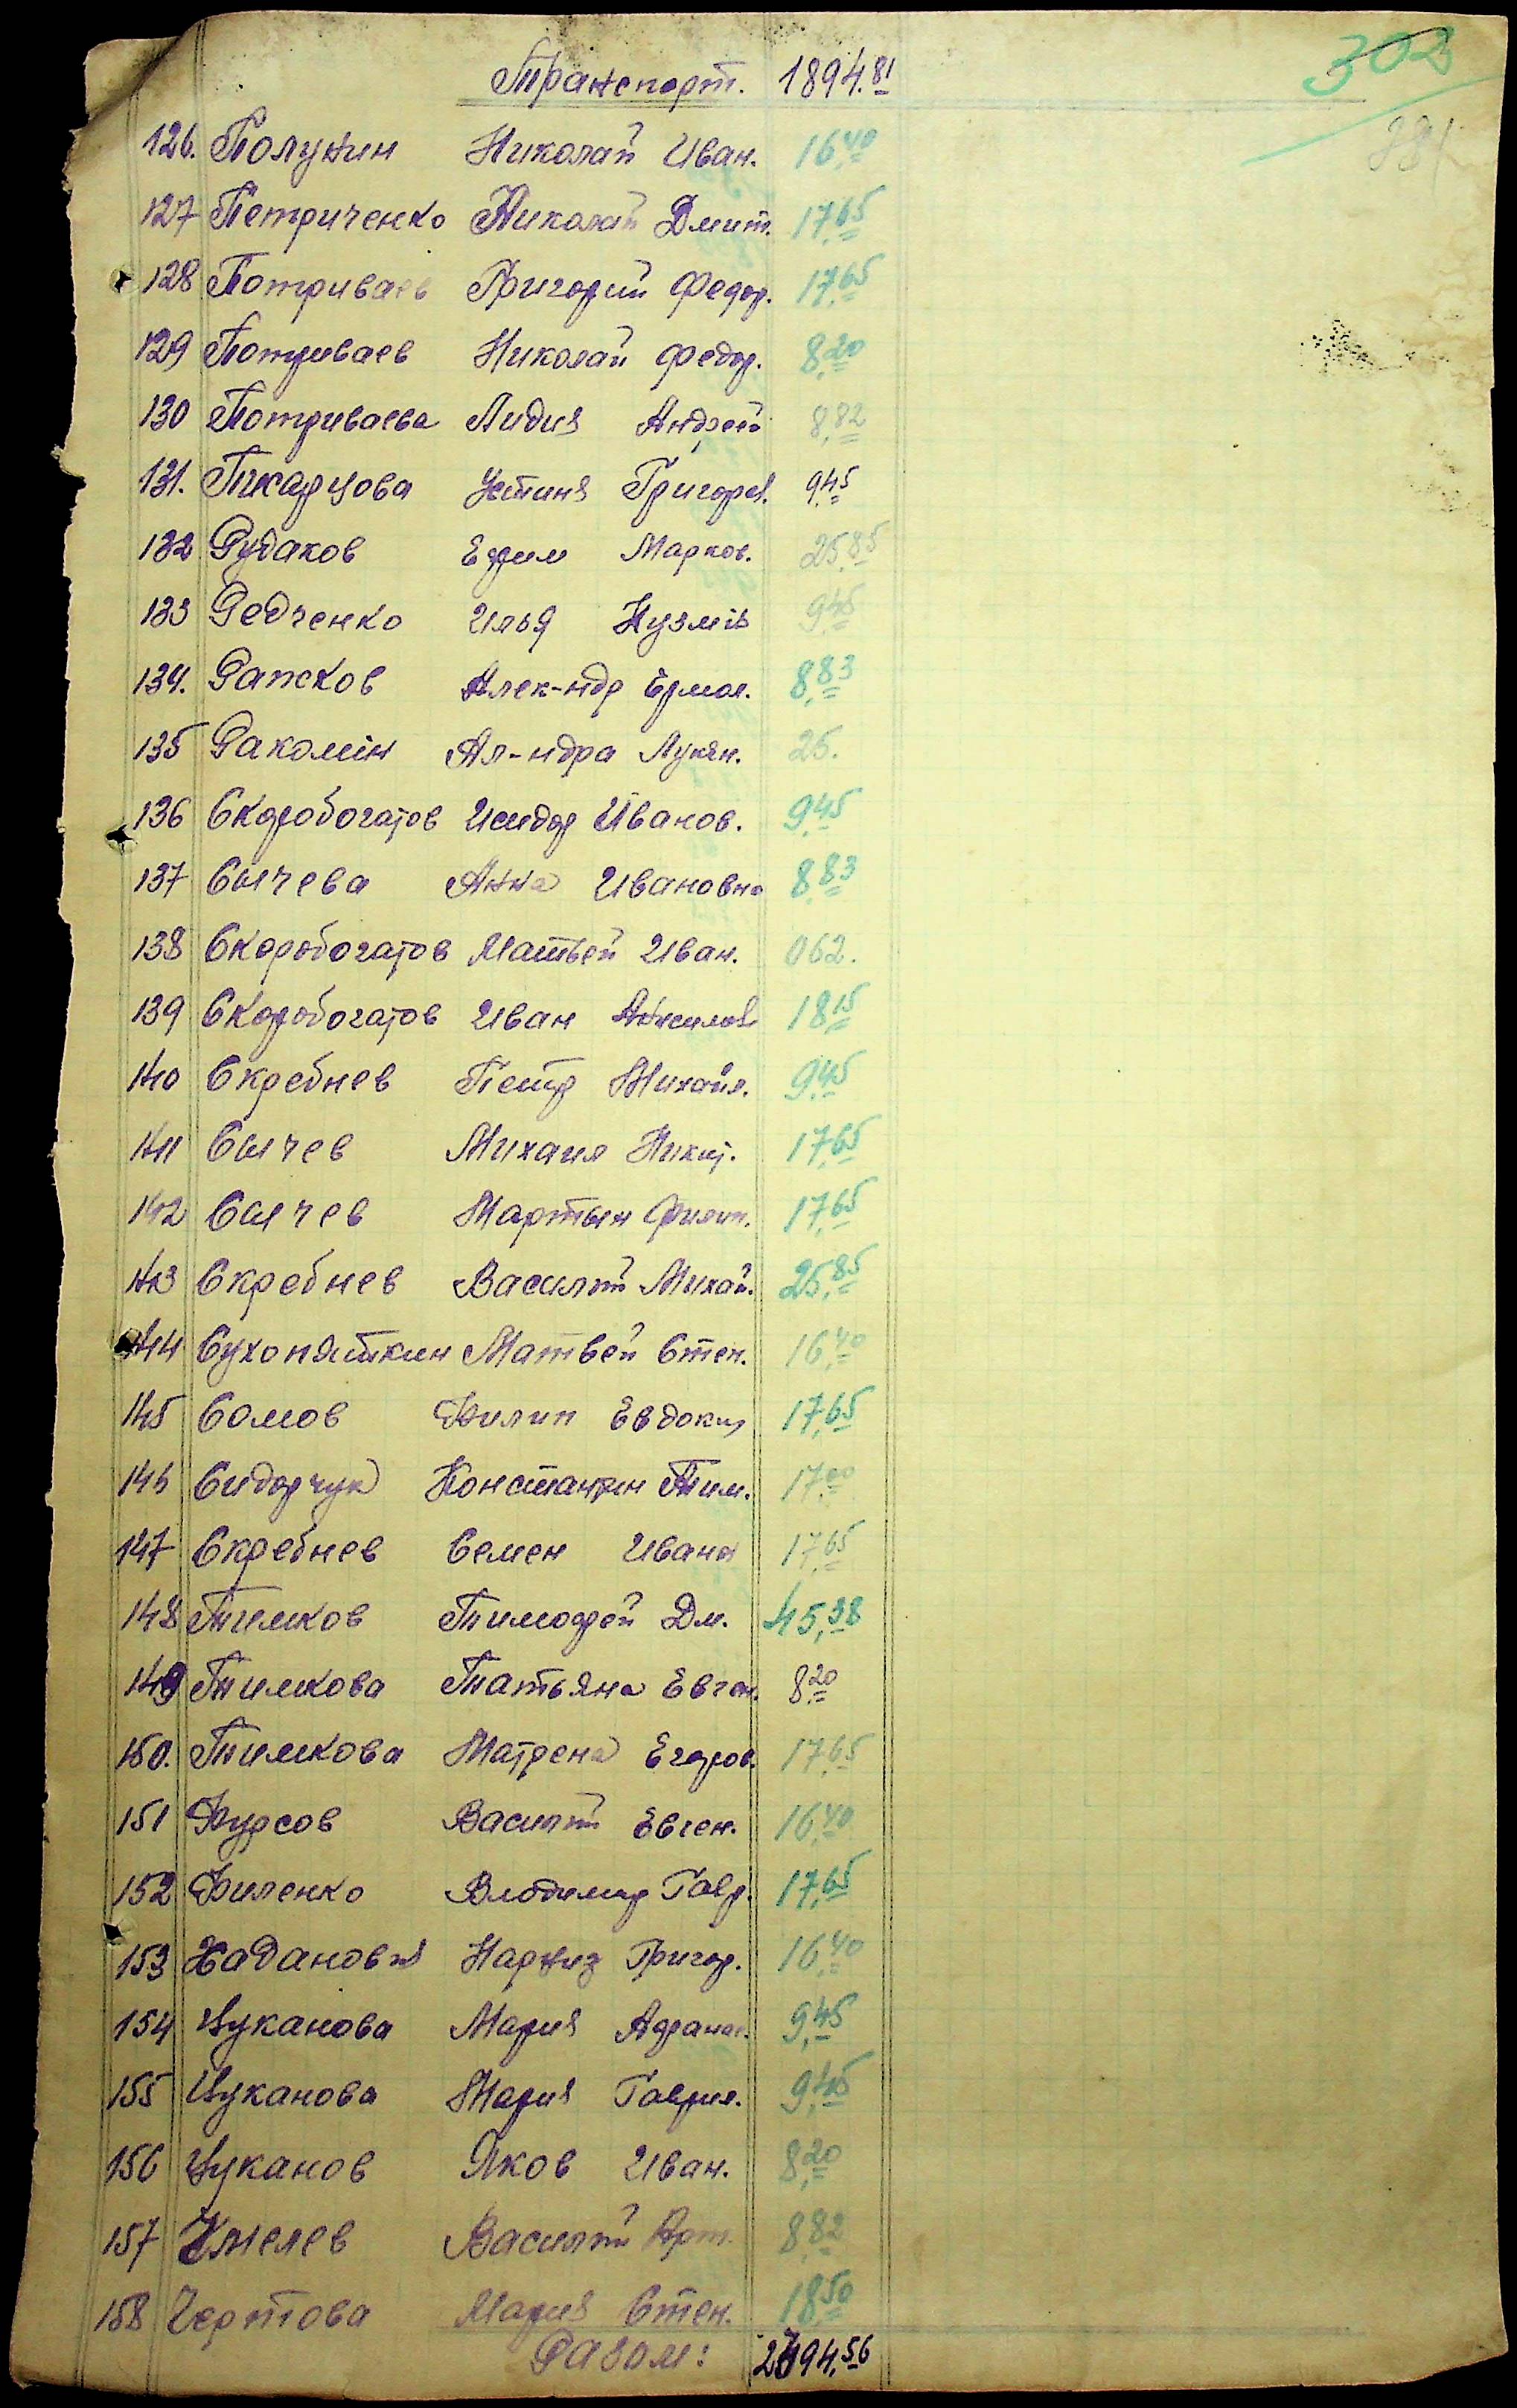 302
Транспорт. 1894.81
281
126. Полунин Николай Иван. 16,40
127 Петриченко Николай Дмит. 17,65
128 Потриваев Григорий Федор. 17,65
129 Потриваев Николай Федор. 8,20
130 Потриваева Лидия Андрей 8,82
131. Писарцова Устиня Григорев. 9,45
132 Рудаков Ефим Марков. 25,85
133 Редченко Илья Кузмів 9,45
134. Рапсков Алек-ндр Ермол. 8,83
135 Ракомін Ал-ндра Лукян. 25.
136 Скоробогатов Исидор Иванов. 9,45
137 Сычева Анна Ивановна 8,83
138 Скоробогатов Матвей Иван. 062.
139 Скоробогатов Иван 18,15
140 Скребнев Петр Михайл. 9,45
141 Сычев Михаил Никит. 17,65
142 Сычев Мартын Филип. 17,65
143 Скребнев Василий Михай. 25,85
144 Сухопяткин Матвей Степ. 16,40
145 Сомов Филип Евдоким 17,65
146 Сидорчук Константин Тим. 17,00
147 Скребнев Семен Иванов 17,65
148 Тимков Тимофей Дм. 45,38
149 Тимкова Татьяна Евген. 8,20
150. Тимкова Матрена Егоров. 17,65
151 Фурсов Василий Евген. 16,40
152 Филенко Владимир Гавр. 17,65
153 Григор. 16,40
154 Цуканова Мария Афанас. 9,45
155 Цуканова Мария Гаврил. 9,45
156 Цуканов Яков Иван. 8,20
157 Хмелев Василий Арт. 8,82
158 Чертова Мария Степ. 18,50
Разом: 2494,56